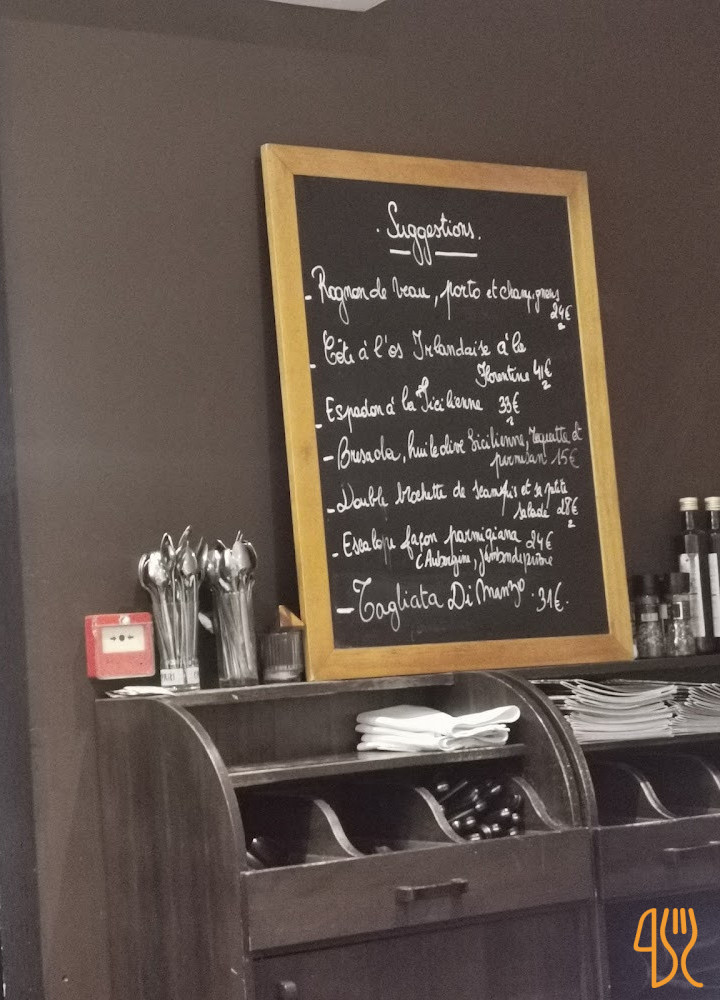 . Suggestions.
- Rognon de veau, porto et champignons
24€
- Côte à l'os Irlandaise à la
Florentine 41€
- Espadon à la Sicilienne 33€
- Bresaola, huile dive Sicilienne, roquette et
parmesan 15€
- Double brochette de scampis et sa ptite
salade 28€
- Escalope façon parmigiana 24€
(Aubergine, Jambon de parme
- Tagliata Di Manzo . 31€.